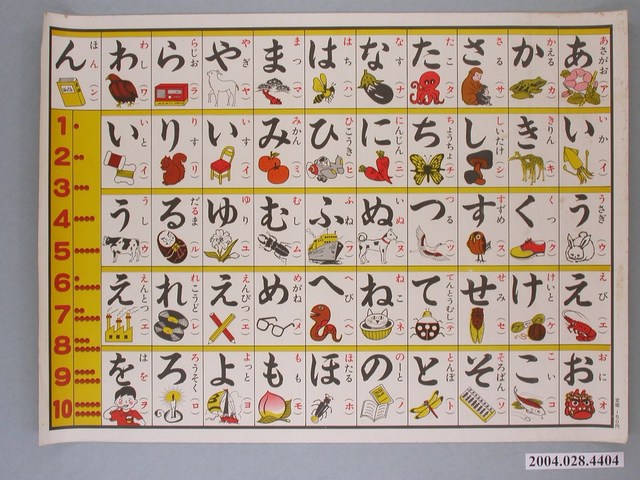 あ あさがお (ア)
い いか (イ)
う うさぎ (ウ)
え えび (エ)
お おに (オ)
か かえる (カ)
き きりん (キ)
く くつ (ク)
け けいと (ケ)
こ こい (コ)
さ さる (サ)
し しいたけ (シ)
す すずめ (ス)
せ せみ (セ)
そ そろばん (ソ)
た たこ (タ)
ち ちょうちょ (チ)
つ つる (ツ)
て てんとうむし (テ)
と とんぼ (ト)
な なす (ナ)
に にんじん (ニ)
ぬ いぬ (ヌ)
ね ねこ (ネ)
の のーと (ノ)
は はち (ハ)
ひ ひこうき (ヒ)
ふ ふね (フ)
へ へび (ヘ)
ほ ほたる (ホ)
ま まつ (マ)
み みかん (ミ)
む むし (ム)
め めがね (メ)
も もも (モ)
や やぎ (ヤ)
い いす (イ)
ゆ ゆり (ユ)
え えんぴつ (エ)
よ よっと (ヨ)
ら らじお (ラ)
り りす (リ)
る だるま (ル)
れ れこうど (レ)
ろ ろうそく (ロ)
わ わし (ワ)
い いと (イ)
う うし (ウ)
え えんとつ (エ)
を はを (ヲ)
ん ほん (ン)
1
2
3
4
5
6
7
8
9
10
2004.028.4404